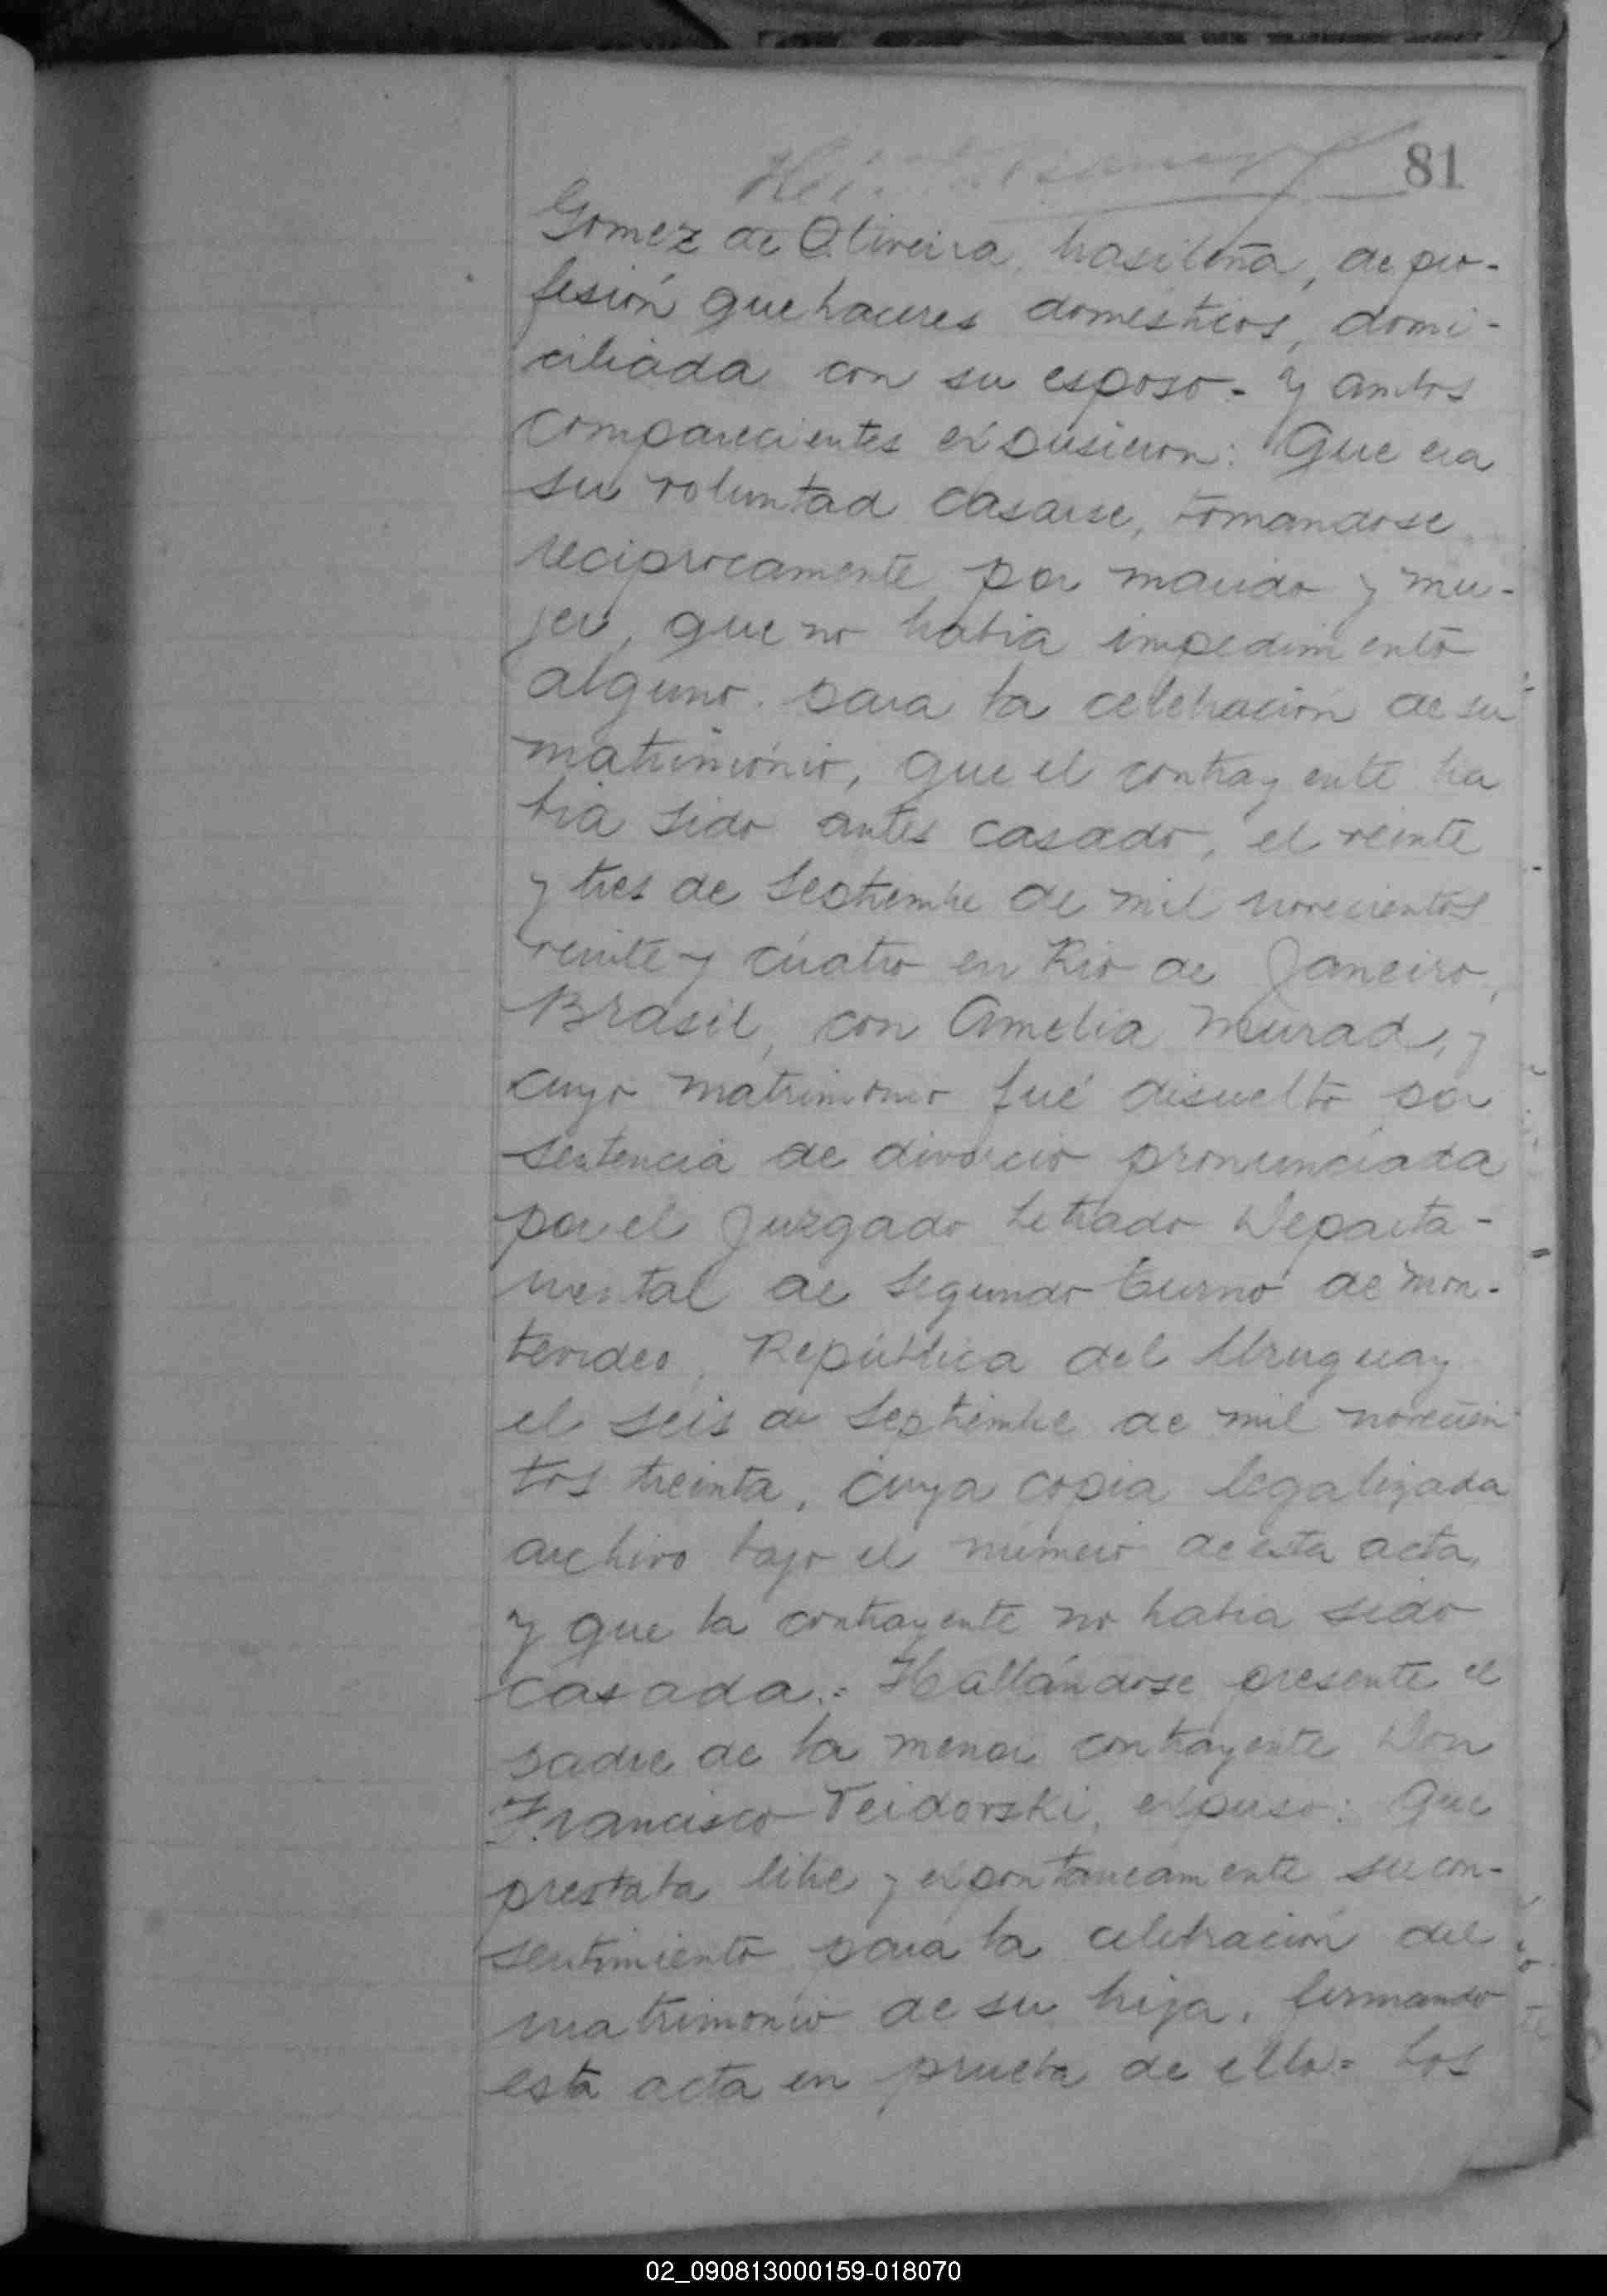 81
Gomez de Oliveira, brasileña, de pro-
fesión quehaceres domésticos, domi-
ciliada con su esposo.- y ambos
comparecientes expusieron: Que era
su voluntad casarse, tomandose
reciprocamente por marido y mu-
jer, que no habia impedimento
alguno para la celebración de su
matrimónio, que el contrayente ha
bia sido antes casado, el veinte
y tres de Septiembre de mil novecientos
veinte y cuatro en Rio de Janeiro,
Brasil, con Amelia Murad, y
cuyo matrimonio fué disuelto por
sentencia de divorcio pronunciada
por el Juzgado Letrado Departa-
mental de Segundo turno de Mon-
tevideo, República del Uruguay
el seis de Septiembre de mil novecien
tos treinta, cuya copia legalizada
archivo bajo el número de esta acta,
y que la contrayente no habia sido
casada.= Hallándose presente el
padre de la menor contrayente Don
Francisco Teidorski, expuso: Que
prestaba libre y expontaneamente su con-
sentimiento para la celebración del
matrimonio de su hija, firmando
esta acta en prueba de ello= Los
02_090813000159-018070